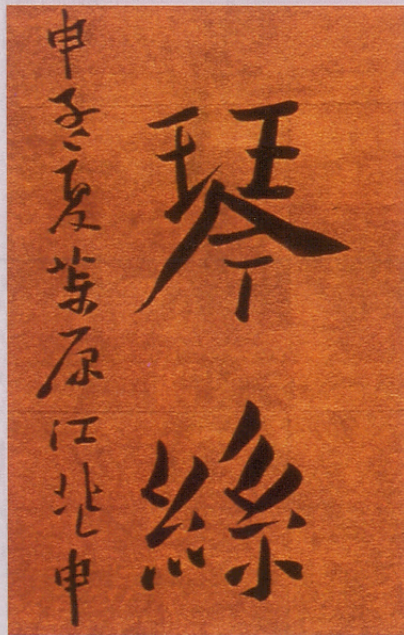 琴絲
甲子夏茮原江兆申